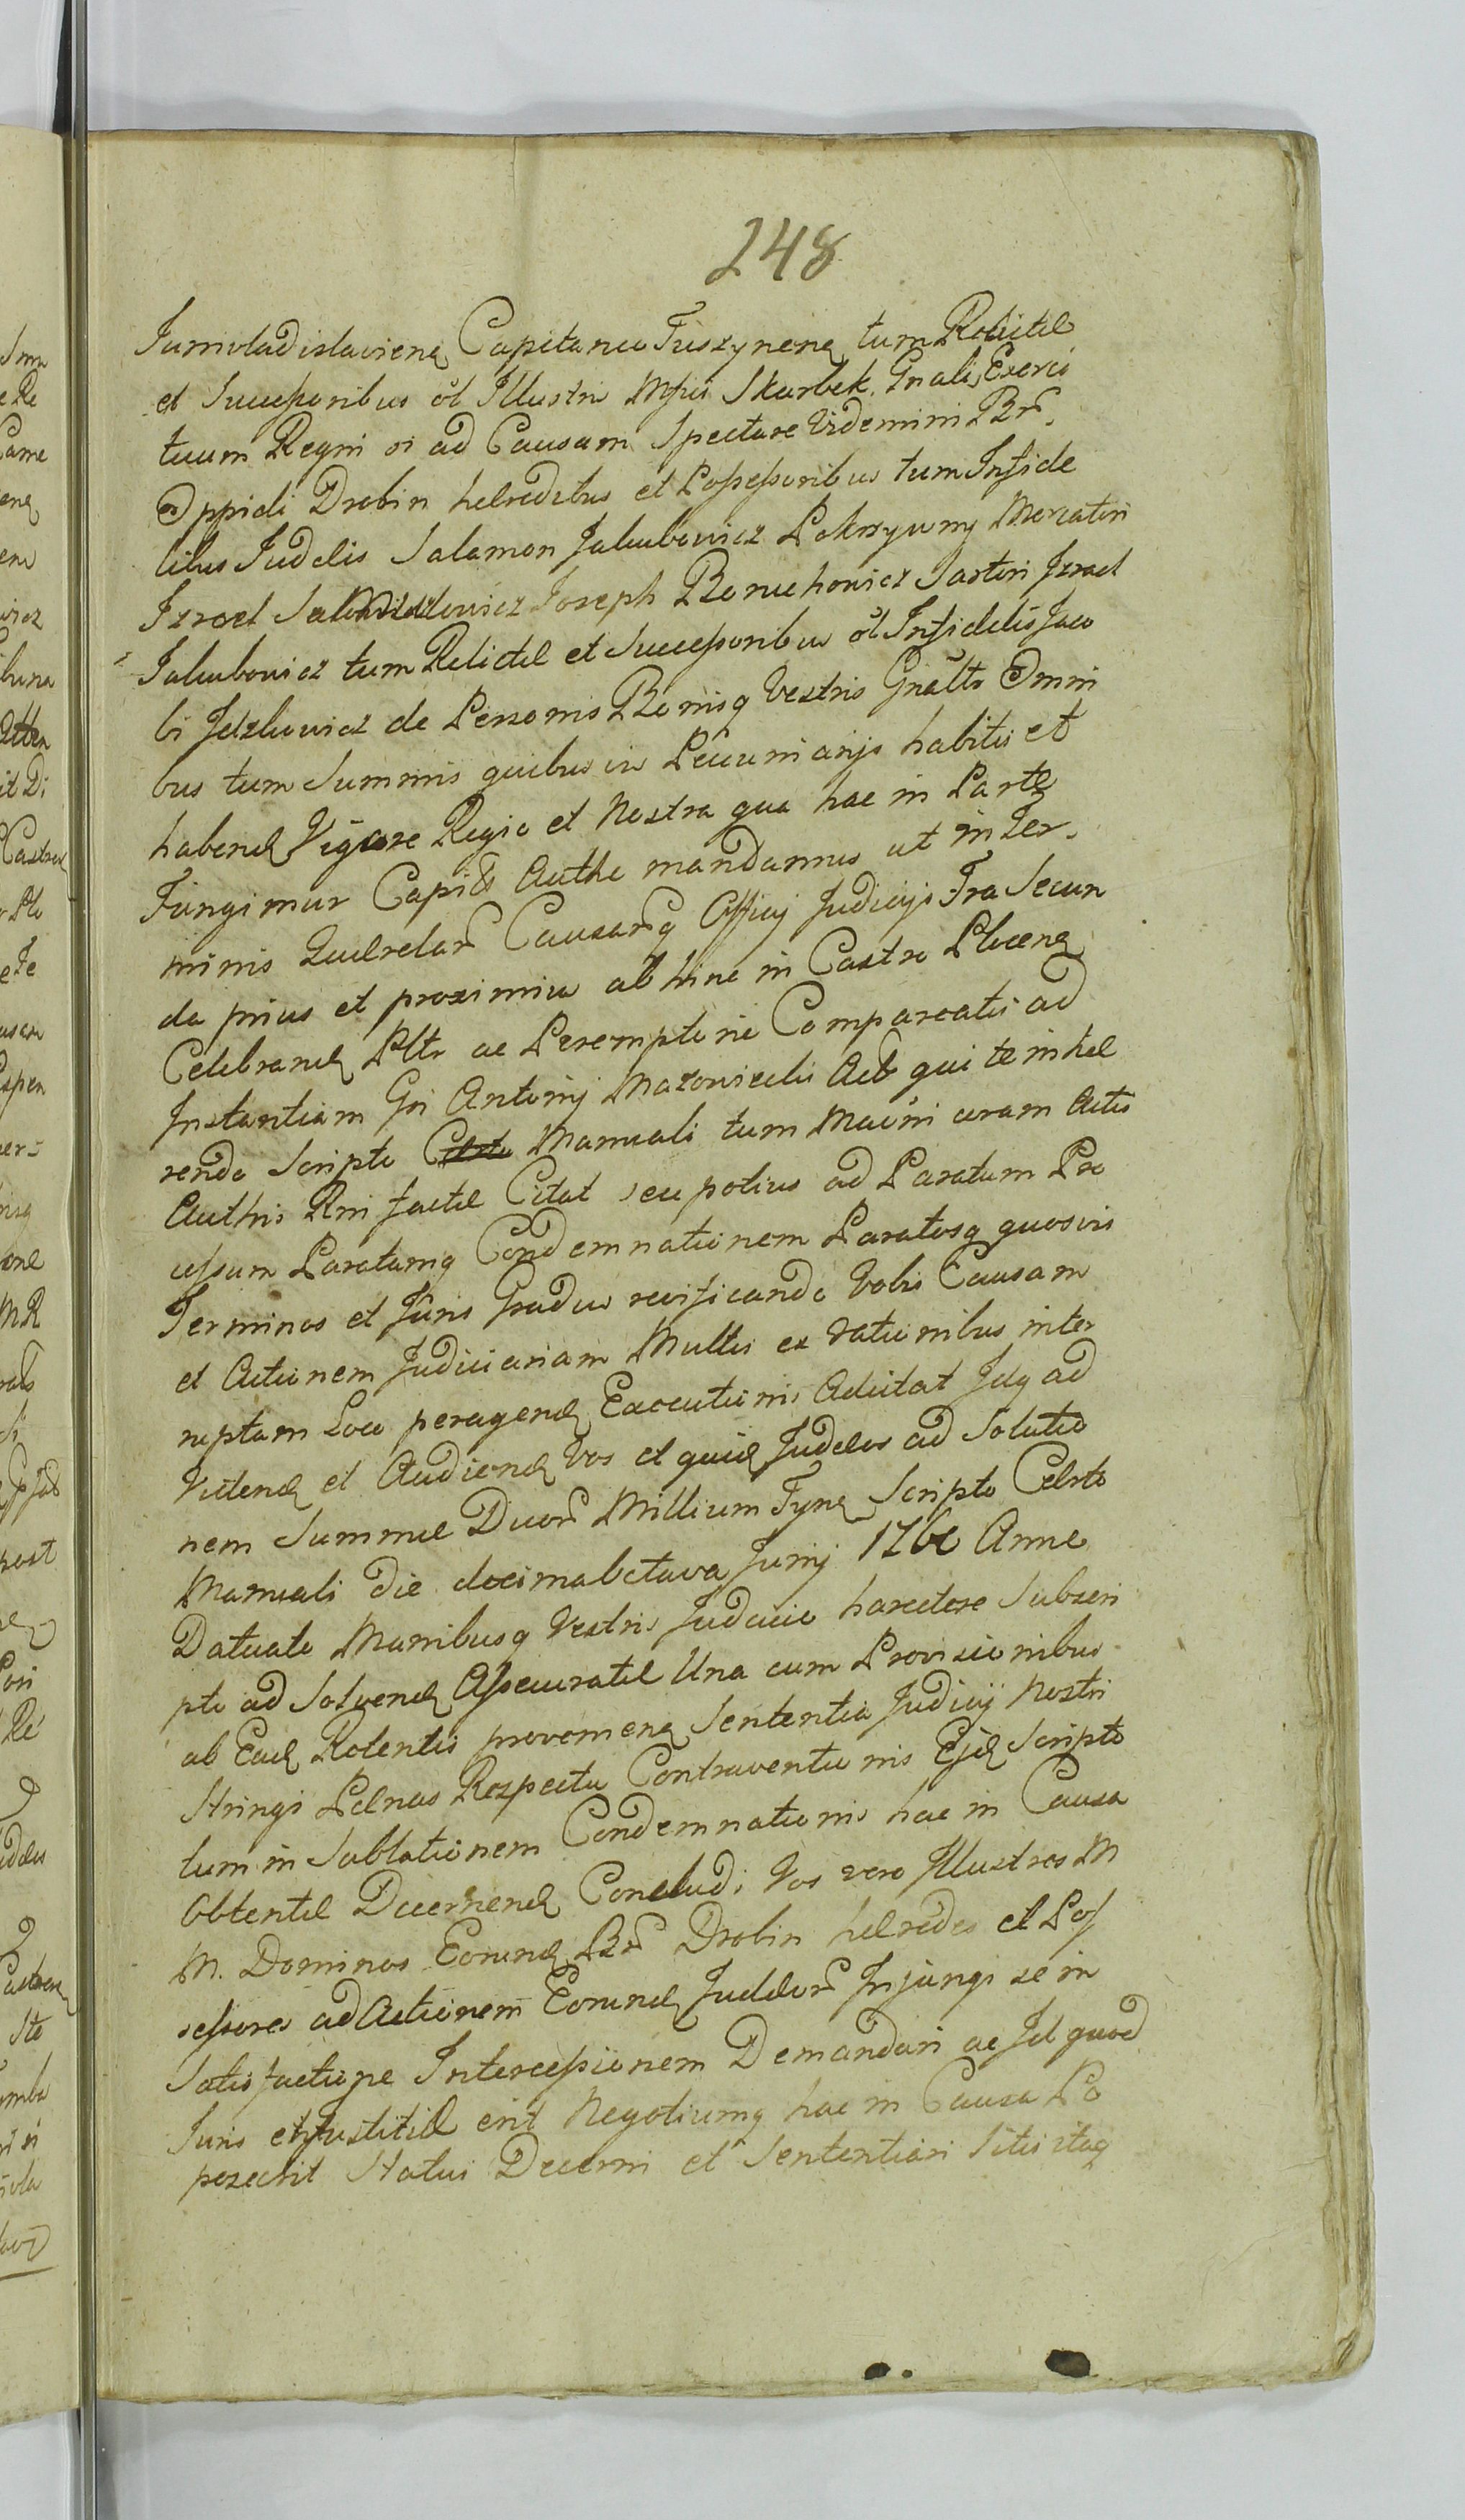 248
Juniwladislavienꝫ Capitaneo Tuszynenꝫ tum Relictæ
et Successoribus ol Illustri Mfici Skarbek Gnalis Exerci
tuum Regni si ad Causam Spectare Videmini Br̃
Oppidi Drobin hæredibus et Possessoribus tum Infide
libus Judæis Salamon Jakubowicz Pokrzywny Mercatori
Izrael Joseph Boruchowicz Sartori Izrael
Jakubowicz tum Relictæ et Successoribus ol Infidelis Jaco
bi de Personis Bonisq Vestris Gnaltr Omni
bus tum Summis quibusvis Pecuniarijs habitis et
habendꝫ Vigore Regio et Nostra qua hac in Parte
Fungimur Capitꝭ Authe mandamus ut in Ter
minis Quærelarũ Causarũq Officij Judicijs Fra Secun
da prius et proximius ab hinc in Castro Plocenꝫ
Celebrandꝫ Pltr ac Peremptorie Compareatis ad
Instantiam Gsi Antonij Mazowiecki Act qui te inhæ
rendo Scripto Manuali tum Macñi coram Actis
Authis Rni factæ Citat seu potius ad Paratum Pro
cessum Paratamq Condemnationem Paratosq quosvis
Terminos et Juris Gradus reificando Vobis Causam
et Actionem Judiciariam Multis ex rationibus inter
ruptam Loco peragendꝫ Executionis Adcitat Idq ad
Videndꝫ et Audiendꝫ Vos et quidꝫ Judæos ad Solutio
nem Summæ Duorũ Millium Tynꝫ Scripto Celrto
Manuali die decima octava Junij 1760 Anno
Datuato Manibusq Vestris Judaico haractere Subscri
pto ad Solvendꝫ Assecuratæ Una cum Provisionibus
ab Eadꝫ Rotentis provomenꝫ Sententia Judicij Nostri
Stringi Pœnas Respectu Contraventionis Ejdꝫ Scripto
tum in Sublationem Condemnationis hac in Causa
Obtentæ Decernendꝫ Concludi Vos vero Illustres M
M. Dominos Eorundꝫ Br̃ Drobin hæredes et Pos
sessores ad Actionem Eorundꝫ Judæorũ Injungi se in
Satisfactione Intercessionem Demandari ac Id quod
Juris et Justitiæ erit Negotiumq hac in Causa Po
poscerit Statui Decerni et Sententiari Sitis itaq